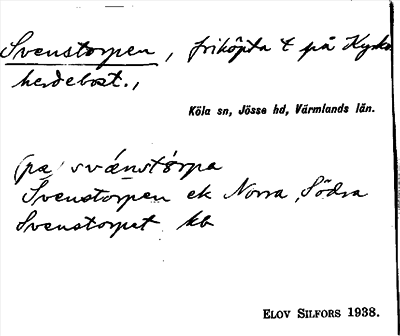 Svenstorpen, friköpta t på Kyrko
herdebost.,
Köla sn, Jösse hd, Värmlands län.
(pa) svænstórpa
Svenstorpen ek Norra, Södra
Svenstorpet kb
ELOV SILFORS 1938.